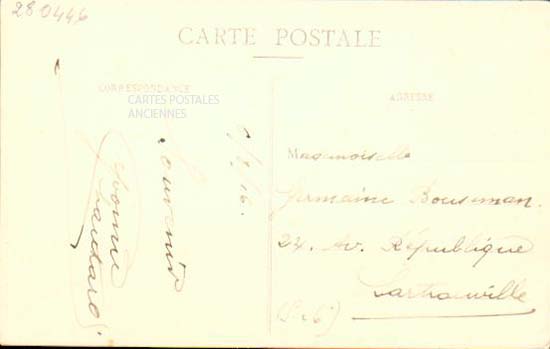 280446
CARTE POSTALE
CORRESPONDANCE
CARTES POSTALES
ANCIENNES
ADRESSE
Souvenir
Yvonne
Mademoiselle
Germaine
24. Av. République
Sartrouville